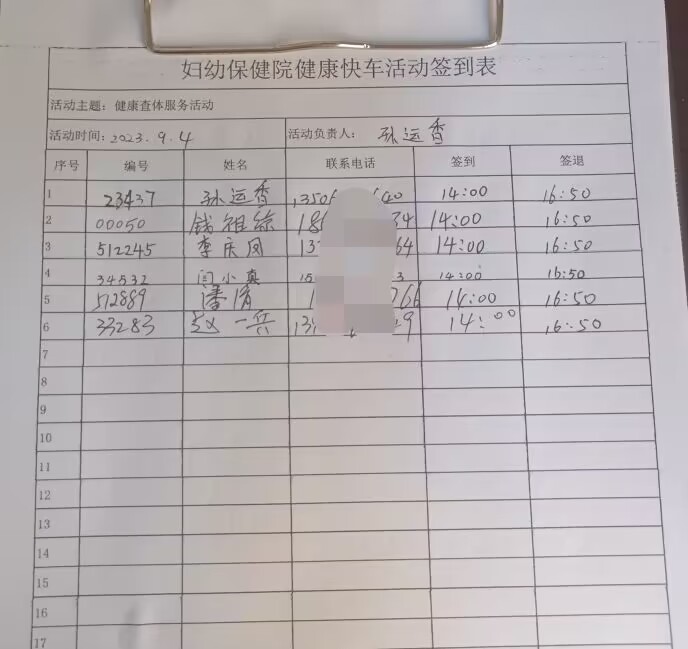 妇幼保健院健康快车活动签到表
活动主题：健康查体服务活动
活动时间：2023.9.4 活动负责人：孙运香
序号 编号 姓名 联系电话 签到 签退
1 23437 孙运香 1350 640 14:00 16:50
2 00050 钱祖综 18 34 14:00 16:50
3 512245 李庆凤 13 64 14:00 16:50
4 34532 闫小真 15 3 14:00 16:50
5 512889 潘清 1 766 14:00 16:50
6 33283 一兵 13 9 14:00 16:50
7
8
9
10
11
12
13
14
15
16
17